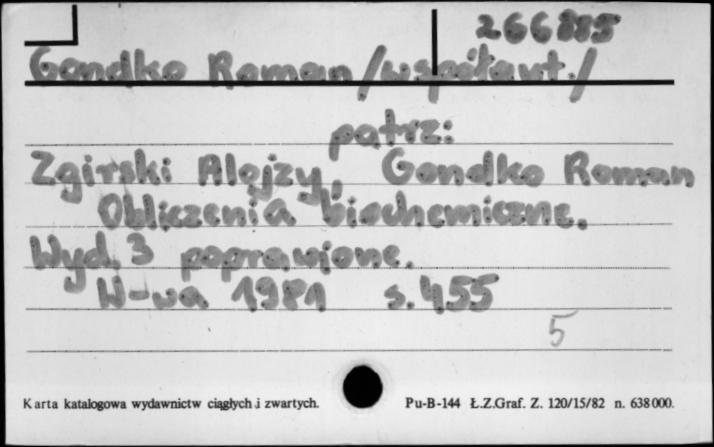 266885
Gondko Roman /współaut./
patrz:
Zgirski Alojzy, Gondko Roman
Obliczenia biochemiczne.
Wyd. 3 poprawione.
W-wa 1981 s. 455
5
Karta katalogowa wydawnictw ciągłych i zwartych. Pu-B-144 Ł.Z.Graf. Z. 120/15/82 n. 638 000.